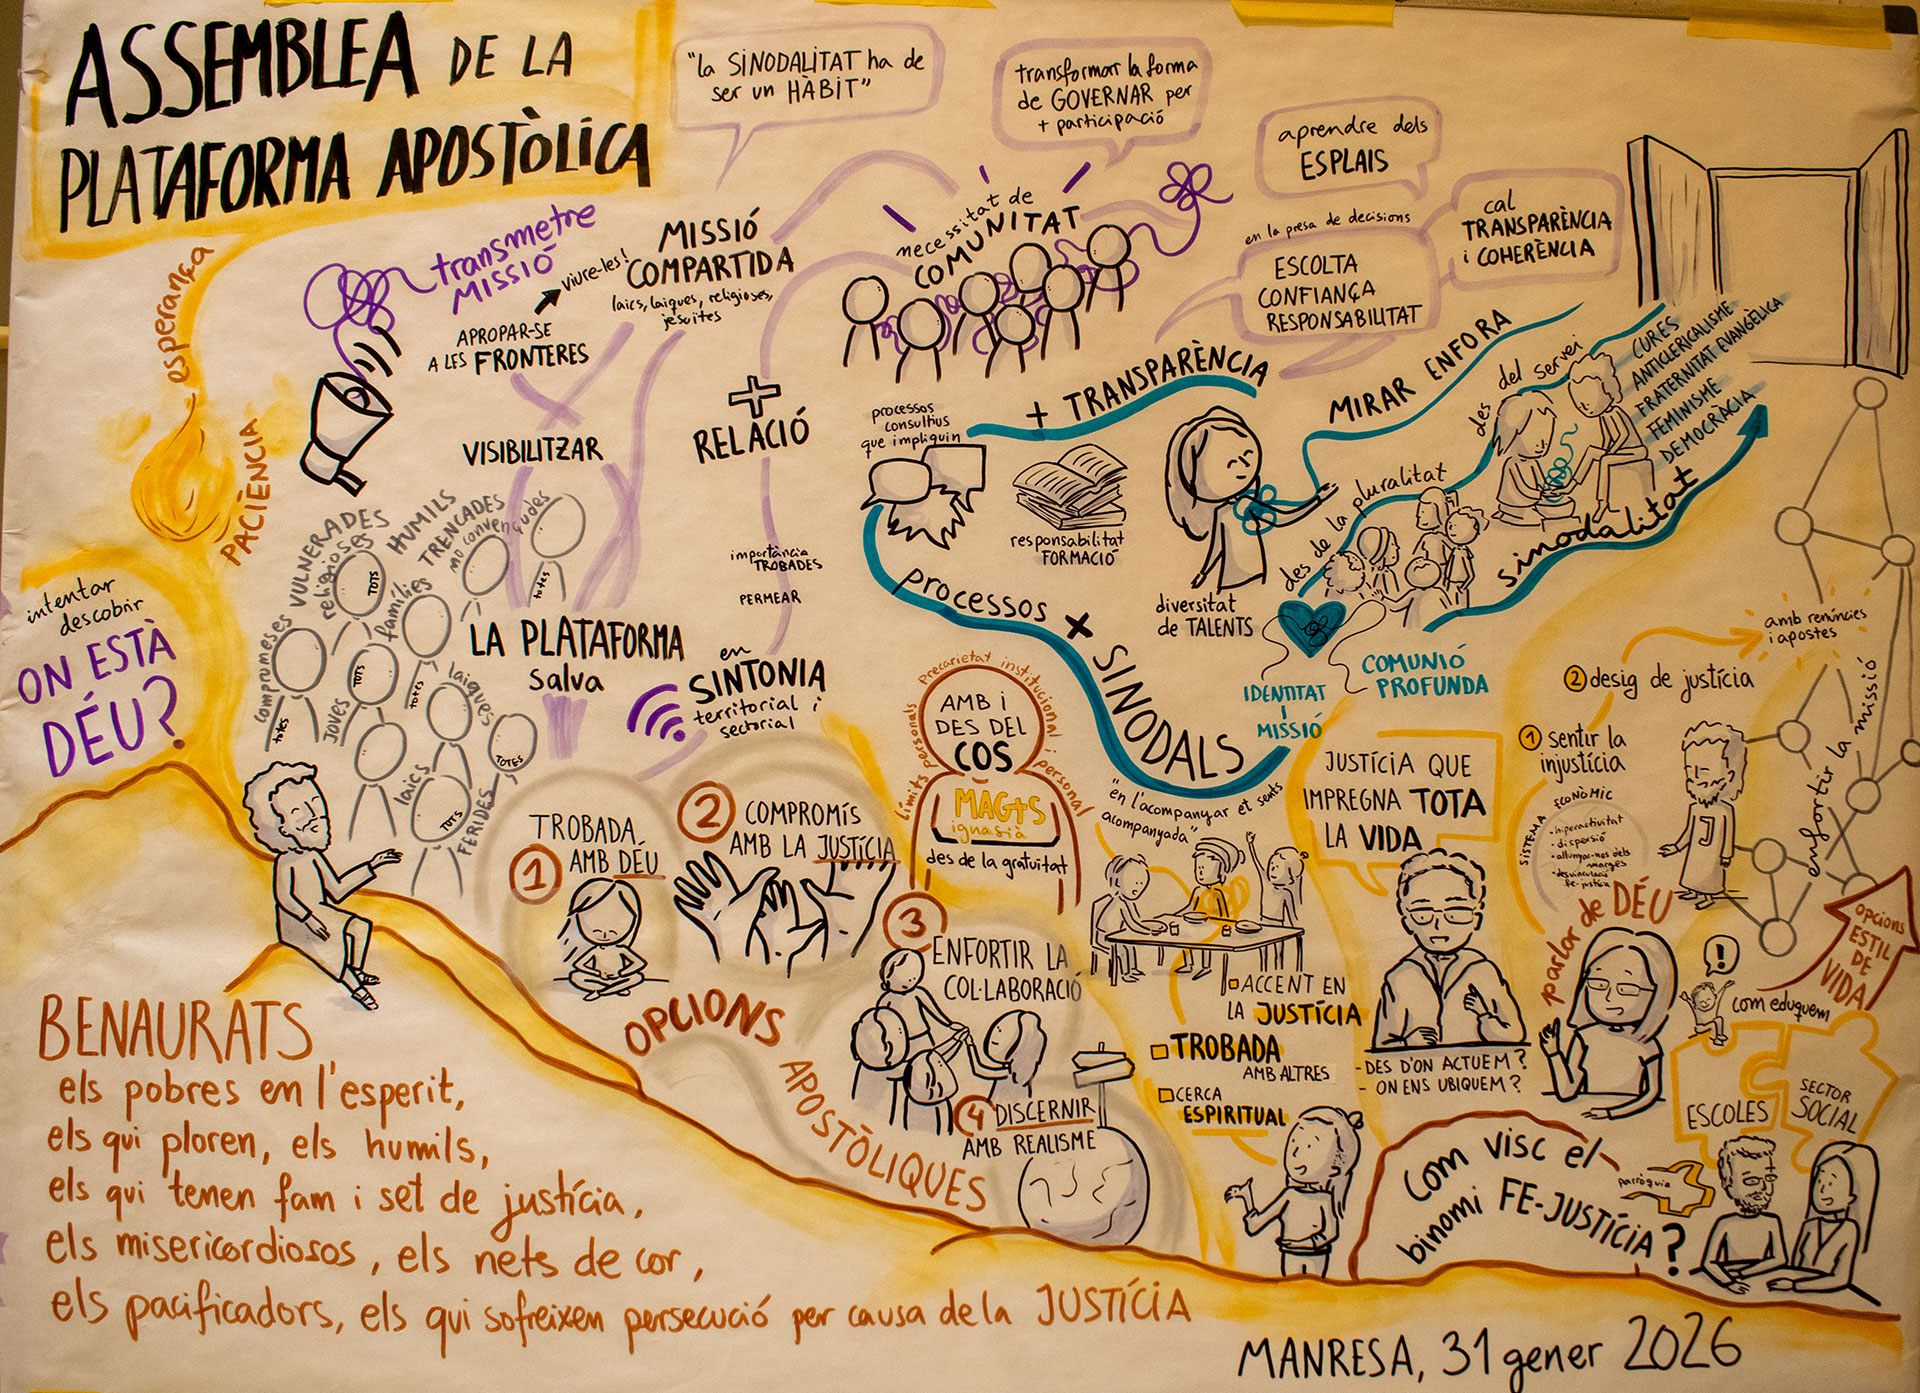 ASSEMBLEA DE LA
PLATAFORMA APOSTÒLICA
"la SINODALITAT ha de
ser un HÀBIT"
transformar la forma
de GOVERNAR per
+ participació
aprendre dels
ESPLAIS
en la presa de decisions
cal
TRANSPARÈNCIA
i COHERÈNCIA
ESCOLTA
CONFIANÇA
RESPONSABILITAT
esperança
PACIÈNCIA
transmetre
MISSIÓ
viure-les!
APROPAR-SE
A LES FRONTERES
MISSIÓ
COMPARTIDA
laics, laiques, religioses,
jesuïtes
necessitat de
COMUNITAT
VISIBILITZAR
+
RELACIÓ
importància
TROBADES
PERMEAR
en
SINTONIA
territorial i
sectorial
intentar
descobrir
ON ESTÀ
DÉU?
compromeses
VULNERADES
religioses
HUMILS
TRENCADES
no convençudes
famílies
JOVES
laiques
laics
FERIDES
TOTS
totes
TOTS
totes
totes
totes
TOTS
TOTES
LA PLATAFORMA
salva
processos
consultius
que impliquin
+ TRANSPARÈNCIA
responsabilitat
FORMACIÓ
processos × SINODALS
diversitat
de TALENTS
MIRAR ENFORA
des del servei
des de la pluralitat
CURES
ANTICLERICALISME
FRATERNITAT EVANGÈLICA
FEMINISME
DEMOCRÀCIA
sinodalitat
IDENTITAT
i
MISSIÓ
COMUNIÓ
PROFUNDA
1 TROBADA
AMB DÉU
2 COMPROMÍS
AMB LA JUSTÍCIA
3 ENFORTIR LA
COL·LABORACIÓ
4 DISCERNIR
AMB REALISME
OPCIONS APOSTÒLIQUES
Límits personals
Precarietat institucional i personal
AMB i
DES DEL
COS
MAG+S
ignasià
des de la gratuïtat
"en l'acompanyar et sents
acompanyada"
ACCENT EN
LA JUSTÍCIA
TROBADA
AMB ALTRES
CERCA
ESPIRITUAL
JUSTÍCIA QUE
IMPREGNA TOTA
LA VIDA
- DES D'ON ACTUEM?
- ON ENS UBIQUEM?
1 sentir la
injustícia
2 desig de justícia
amb renúncies
i apostes
SISTEMA
ECONÒMIC
• hiperactivitat
• dispersió
• allunyar-nos dels
marges
• desvinculació
fe-justícia
parlar de DÉU
J
enfortir la missió
OPCIONS
ESTIL
DE
VIDA
!
com eduquem
ESCOLES
SECTOR
SOCIAL
parròquia
Com visc el
binomi FE-JUSTÍCIA?
BENAURATS
els pobres en l'esperit,
els qui ploren, els humils,
els qui tenen fam i set de justícia,
els misericordiosos, els nets de cor,
els pacificadors, els qui sofreixen persecució per causa de la JUSTÍCIA
MANRESA, 31 gener 2026